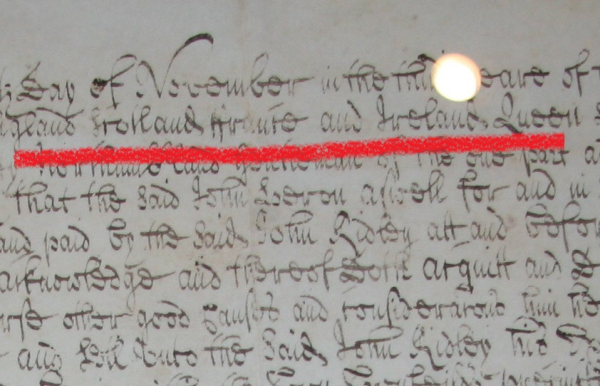 day of November in the eare of
England Scotland ffrance and Ireland Queen
Northumberland gentleman of the one part
that the said John Heron aswell for and in
and paid by the said John Ridley att and before
acknowledge and thereof doth acquitt and
other good causes and consideracons him
and sell unto the said John Ridley his